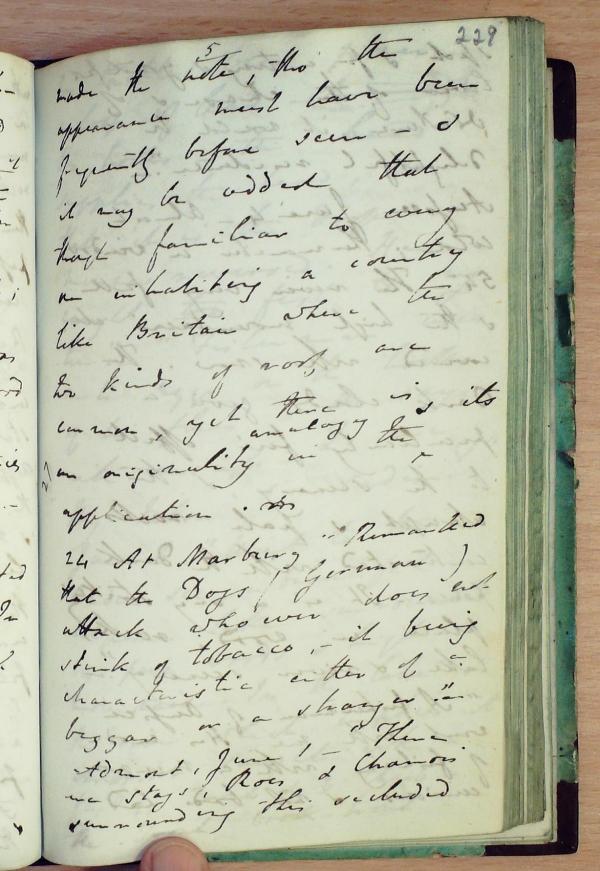 229
made the note, tho the
appearance must have been
frequently before seen – &
it may be added that
though familiar to every
one inhabiting a country
like Britain where the
two kinds of roof are
common, yet there is
an originality in the analogy & its
application.
24 At Marburg "Remarked
that the Dogs (German)
attack whoever does not
stink of tobacco, – it being
characteristic either of a
beggar or a stranger."
Admont, June, – "There
are stags, Roes & Chamois
surrounding this secluded